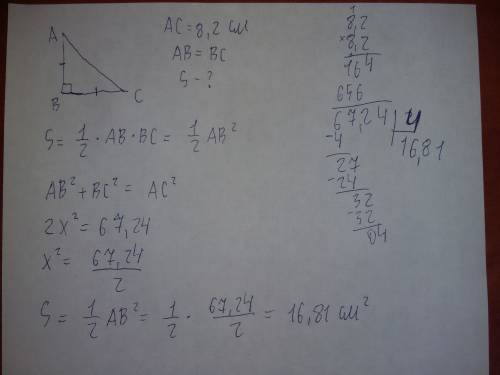 A
B
C
AC = 8,2 см
AB = BC
S - ?
S = 1/2 · AB · BC = 1/2 AB²
AB² + BC² = AC²
2x² = 67,24
x² = 67,24/2
S = 1/2 AB² = 1/2 · 67,24/2 = 16,81 см²
1
8,2
×8,2
164
656
67,24 | 4
-4
16,81
27
-24
32
-32
04